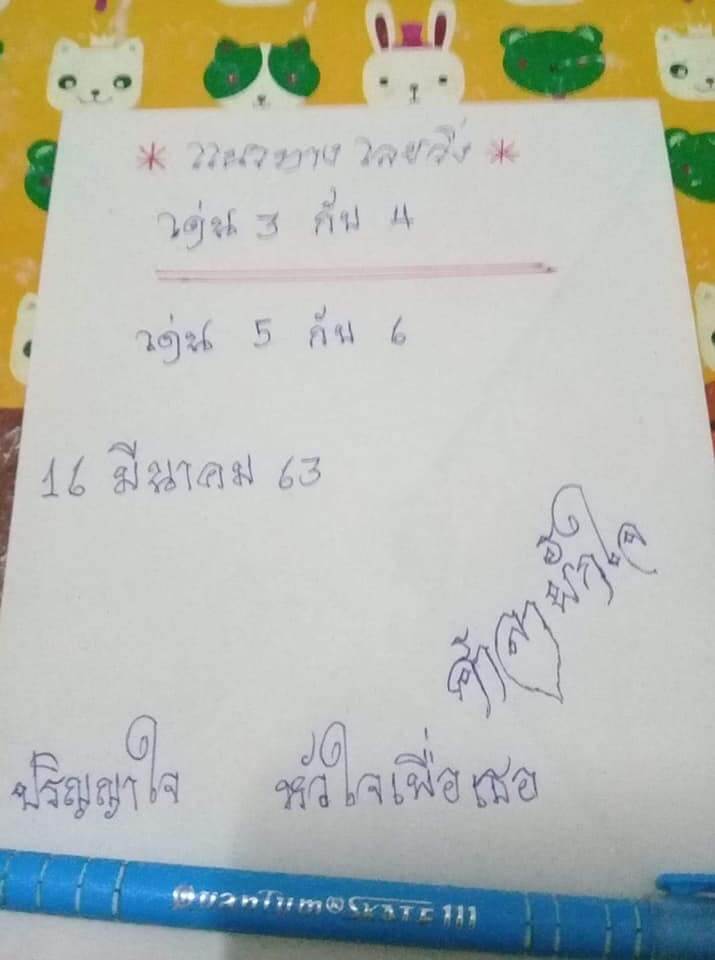 * แนวทาง เลขวิ่ง *
เด่น 3 กับ 4
เด่น 5 กับ 6
16 มีนาคม 63
ปริญญาใจ
หัวใจเพื่อเธอ
Quantum® SKATE 111